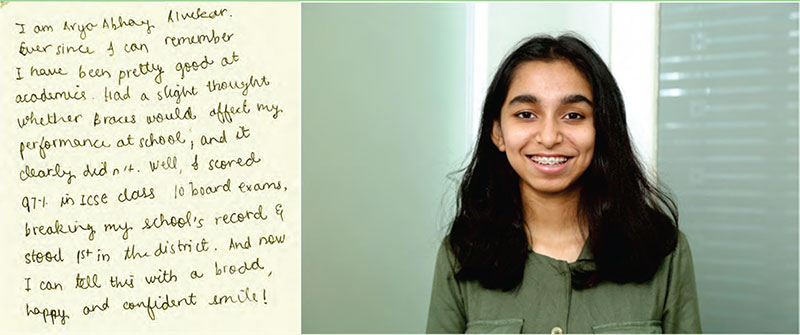 I am Arya Abhay Alvekar.
Ever since I can remember
I have been pretty good at
academics. Had a slight thought
whether Braces would affect my
performance at school, and it
clearly didn't. Well, I scored
97% in ICSE class 10 board exams,
breaking my school's record &
stood 1st in the district. And now
I can tell this with a broad,
happy and confident smile!